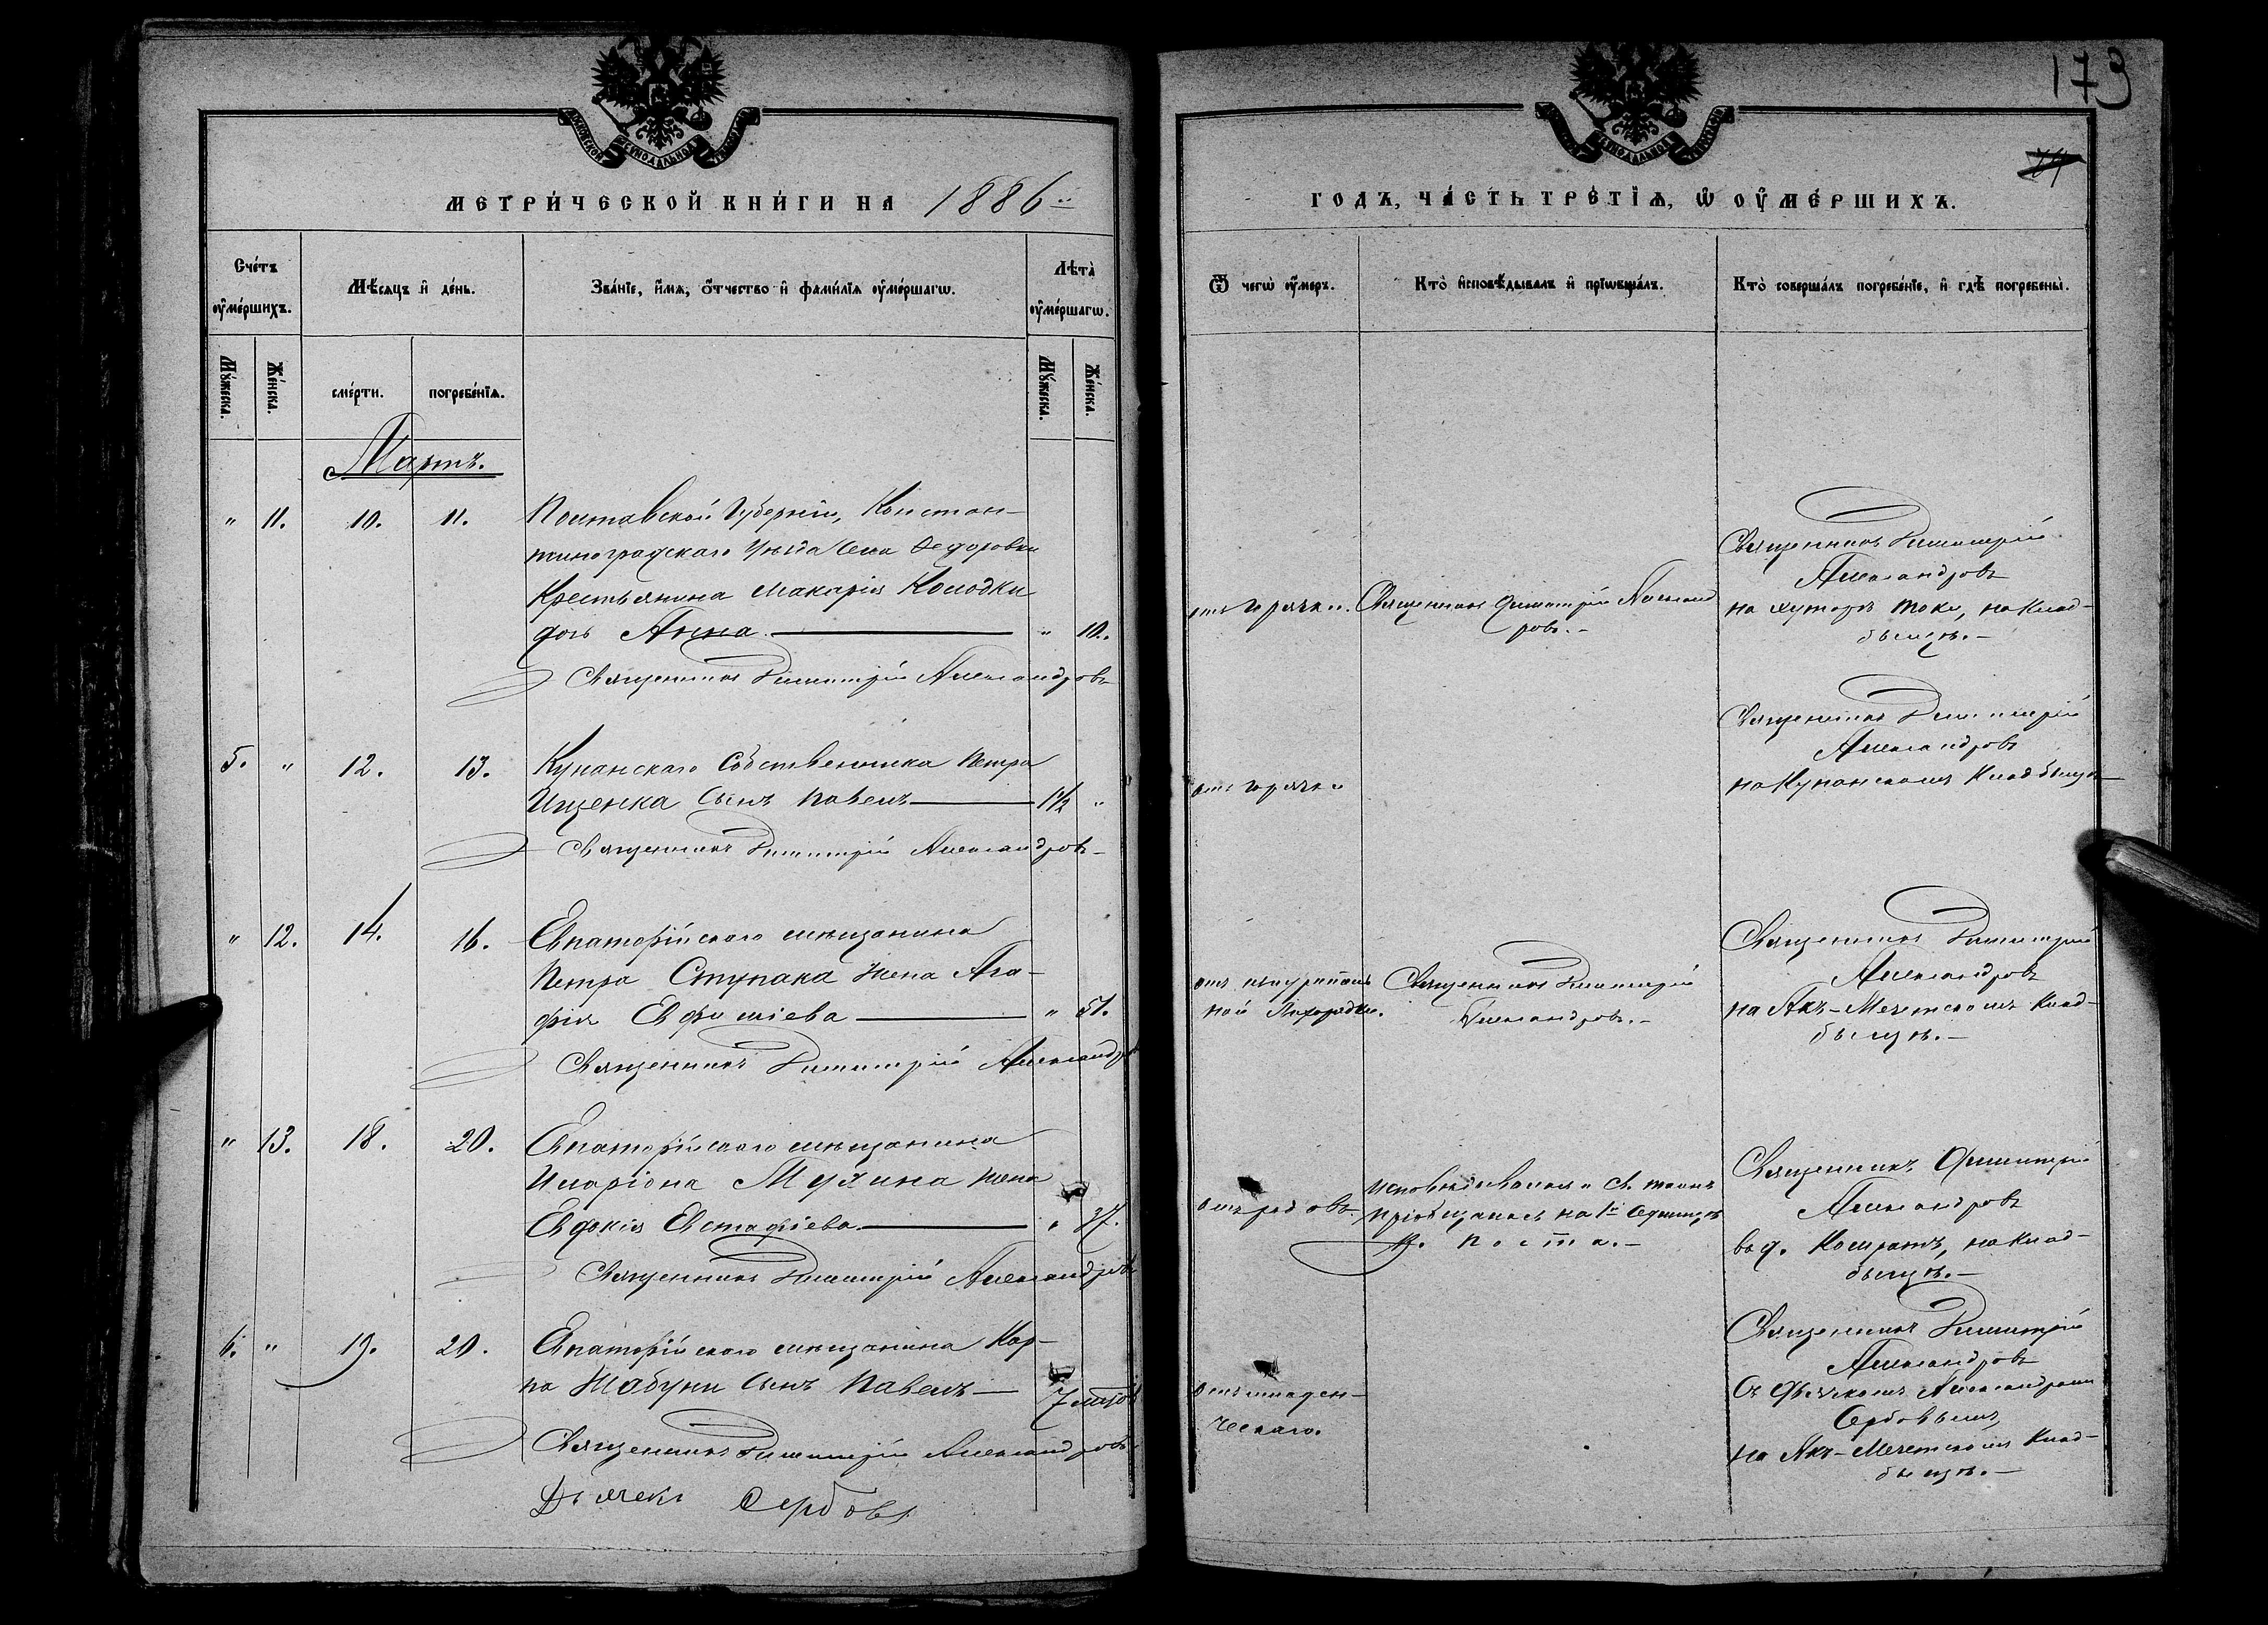 173
МЕТРИ́ЧЕСКОЙ КНИ́ГИ НА 1886
ГОДЪ, ЧА́СТЬ ТРЕ́ТІѦ, Ѡ ОУ҆МЕ́РШИХЪ.
Сче́тъ оу҆ме́ршихъ.
Мѣ́сѧцъ и҆ де́нь.
Зва́нїе, и҆́мѧ, о҆́тчество и҆ фами́лїѧ оу҆ме́ршагѡ.
Лѣта̀ оу҆ме́ршагѡ.
Ѿ чегѡ̀ оу҆́меръ.
Кто̀ и҆сповѣ́дывалъ и҆ прїѡбща́лъ.
Кто̀ соверша́лъ погребе́нїе, и҆ гдѣ̀ погребены̀.
Мꙋ́жеска.
Же́нска.
сме́рти.
погребе́нїѧ.
Мꙋ́жеска.
Же́нска.
Мартъ.
" 11. 10. 11.
Полтавской Губерніи, Констан-
тиноградскаго Уѣзда Села Ѳедоровки
Крестьянина Макарія Колодки
дочь Анна. " 10.
Священникъ Димитрій Александровъ
отъ горячки.
Священникъ Димитрій Александ
ровъ.-
Священникъ Димитрій
Александровъ
на хуторѣ Токи, на клад-
бищѣ.-
5. " 12. 13.
Кунанскаго Собственника Петра
Ищенка Сынъ Павелъ 1½ "
Священникъ Димитрій Александровъ
отъ горячки
Священникъ Димитрій
Александровъ
на Кунанскомъ Кладбищѣ
" 12. 14. 16.
Евпаторійскаго мѣщанина
Петра Ступака Жена Ага-
фія Евфиміева " 51.
Священникъ Димитрій Александровъ
отъ изнуритель
ной Лихорадки.
Священникъ Димитрій
Александровъ.-
Священникъ Димитрій
Александровъ
на Акъ-Мечетскомъ клад-
бищѣ.-
" 13. 18. 20.
Евпаторійскаго мѣщанина
Иларіона Мухина жена
Евдокія Евстафіева " 37.
Священникъ Димитрій Александровъ
отъ родовъ.
Исповѣдывалась и Св. таинъ
пріобщалась на 1й Седмицѣ
В. поста.-
Священникъ Димитрій
Александровъ
въ д. на клад-
бищѣ.-
6. " 19. 20.
Евпаторійскаго мѣщанина Кар-
па Шабуни Сынъ Павелъ 7 мѣс
Священникъ Димитрій Александровъ
Дьячекъ Сербовъ
отъ младен-
ческаго.
Священникъ Димитрій
Александровъ
Съ Дьячкомъ Александромъ
Сербовымъ
на Акъ-Мечетскомъ Клад-
бищѣ.-